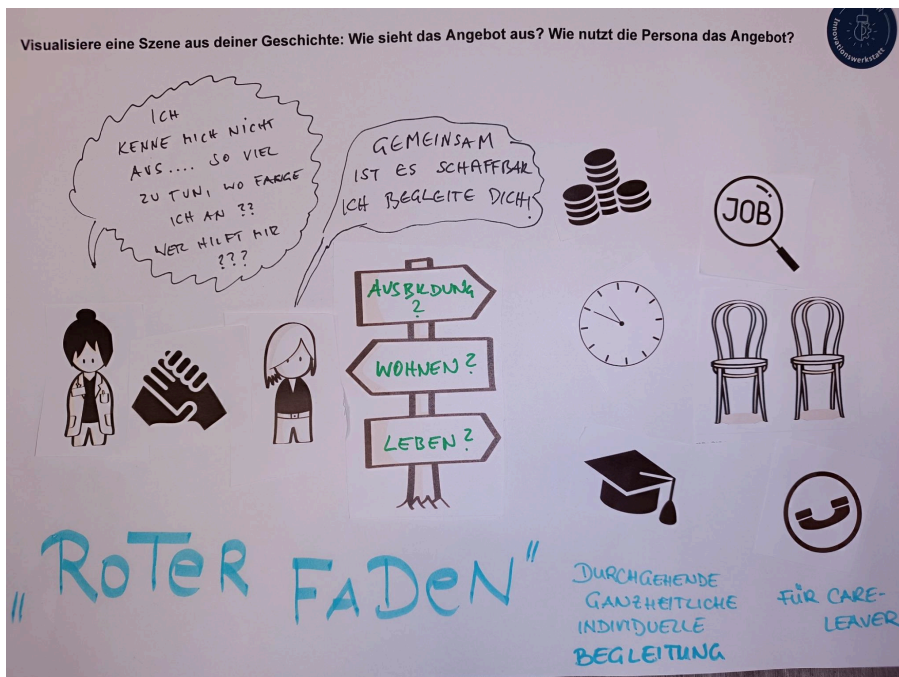 Visualisiere eine Szene aus deiner Geschichte: Wie sieht das Angebot aus? Wie nutzt die Persona das Angebot?
Innovationswerkstatt
ICH
KENNE MICH NICHT
AUS.... SO VIEL
ZU TUN, WO FANGE
ICH AN ??
WER HILFT MIR
???
GEMEINSAM
IST ES SCHAFFBAR
ICH BEGLEITE DICH!
JOB
AUSBILDUNG
?
WOHNEN?
LEBEN?
„ROTER FADEN"
DURCHGEHENDE
GANZHEITLICHE
INDIVIDUELLE
BEGLEITUNG
FÜR CARE-
LEAVER